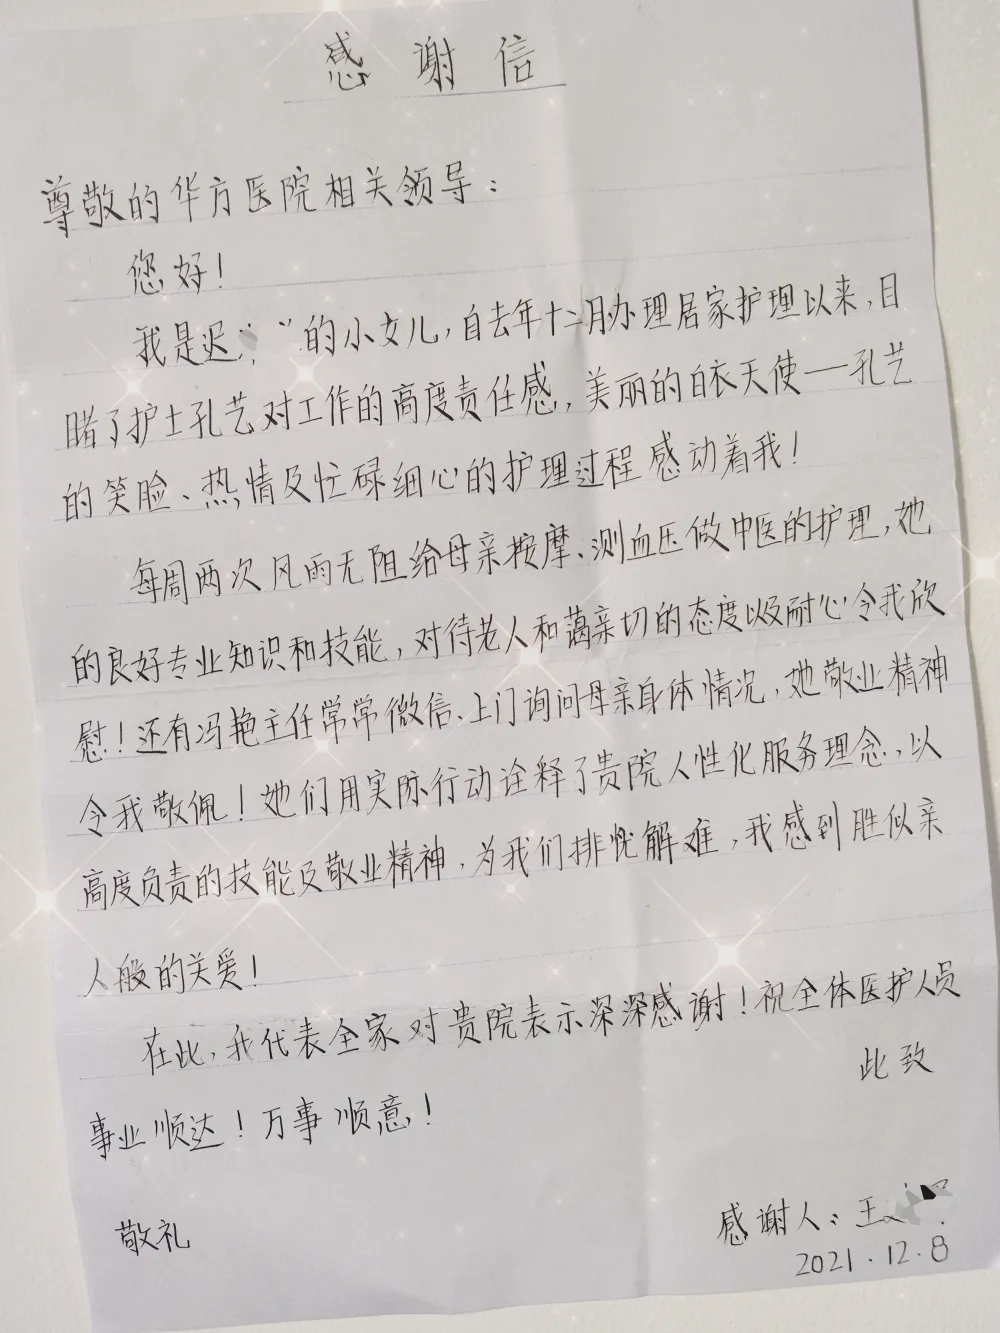 感谢信
尊敬的华方医院相关领导：
您好！
我是迟 的小女儿，自去年十二月办理居家护理以来，目
睹了护士孔艺对工作的高度责任感，美丽的白衣天使——孔艺
的笑脸、热情及忙碌细心的护理过程感动着我！
每周两次风雨无阻给母亲按摩、测血压做中医的护理，她
的良好专业知识和技能，对待老人和蔼亲切的态度以及耐心令我欣
慰！还有冯艳主任常常微信、上门询问母亲身体情况，她敬业精神
令我敬佩！她们用实际行动诠释了贵院人性化服务理念，以
高度负责的技能及敬业精神，为我们排忧解难，我感到胜似亲
人般的关爱！
在此，我代表全家对贵院表示深深感谢！祝全体医护人员
事业顺达！万事顺意！
此致
敬礼
感谢人：王
2021.12.8